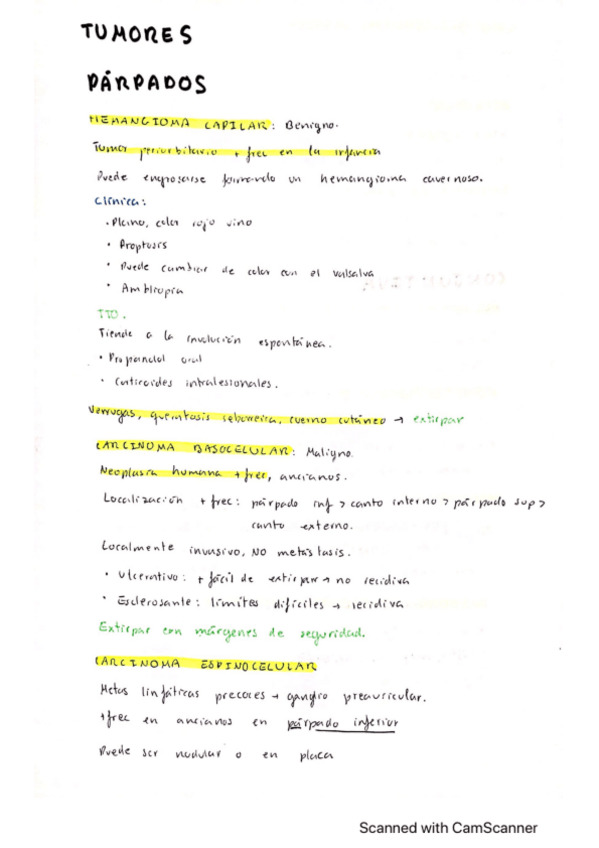 TUMORES
PÁRPADOS
HEMANGIOMA CAPILAR: Benigno.
Tumor periorbitario + frec en la infancia
Puede engrosarse formando un hemangioma cavernoso.
Clínica:
· Plano, color rojo vino
· Proptosis
· Puede cambiar de color con el valsalva
· Ambliopía
TTO.
Tiende a la involución espontánea.
· Propanolol oral
· Corticoides intralesionales.
Verrugas, queratosis seborreica, cuerno cutáneo → extirpar
CARCINOMA BASOCELULAR: Maligno.
Neoplasia humana + frec, ancianos.
Localización + frec: párpado inf > canto interno > párpado sup >
canto externo.
Localmente invasivo, NO metástasis.
· Ulcerativo: + fácil de extirpar → no recidiva
· Esclerosante: límites difíciles → recidiva
Extirpar con márgenes de seguridad.
CARCINOMA ESPINOCELULAR
Metas linfáticas precoces → ganglio preauricular.
+frec en ancianos en párpado inferior
Puede ser nodular o en placa
Scanned with CamScanner